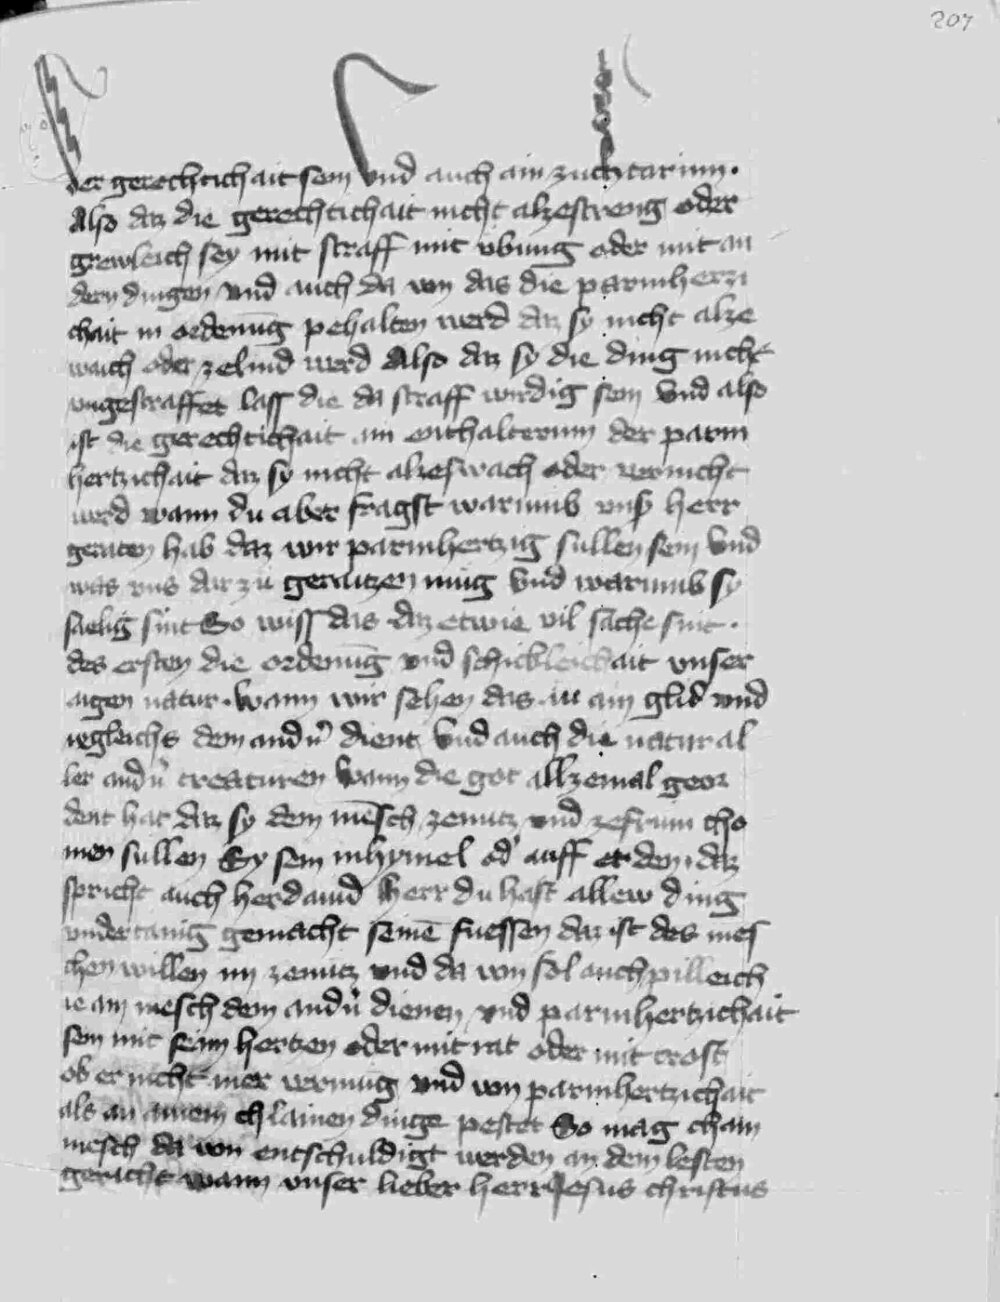 207
der gerechtichait sein vnd auch ain zuchtarinn.
Also daz die gerechtichait nicht alzestreng oder
grewleich sey mit straff mit vbung oder mit an
dern dingen vnd auch da von das die parmherzi
chait in ordenūg pehalten werd daz sy nicht alze
waich oder zelind werd Also daz sy die ding nicht
vngestraffet lass die da straff wirdig sein vnd also
ist die gerechtichait ain enthalterinn der parm
hertzichait daz sy nicht alzeswach oder vernicht
werd wann du aber fragst warumb vnser herr
geraten hab daz wir parmhertzig sullen sein vnd
was vns dar zu geraitzen mug vnd warumb sy
saelig sint So wiss das daz etwie vil sache sint.
des ersten die ordenūg vnd schickleichait vnser
aigen natur. wann wir sehen das in ain glid vnd
iegleichs dem andn̄ dient vnd auch die natur al
ler andn̄ creaturen wann die got allzemal geor
dent hat daz sy dem mēsch zenutz vnd zefrum cho
men sullen Sy sein inhymel od' auff erden. daz
spricht auch herdauid herr du hast allew ding
vndertanig gemacht seinē fuessen daz ist des mēs
chen willen im zenutz vnd da von sol auch pilleich
ie ain mesch dem andn̄ dienen vnd parmhertzichait
sein mit seim hertzen oder mit rat oder mit trost
ob er nicht mer vermug vnd von parmhertzichait
als an ainem chlainen dinge pestet So mag chain
mesch da von entschuldigt werden an dem lesten
gericht wann vnser lieber herr Jesus christus